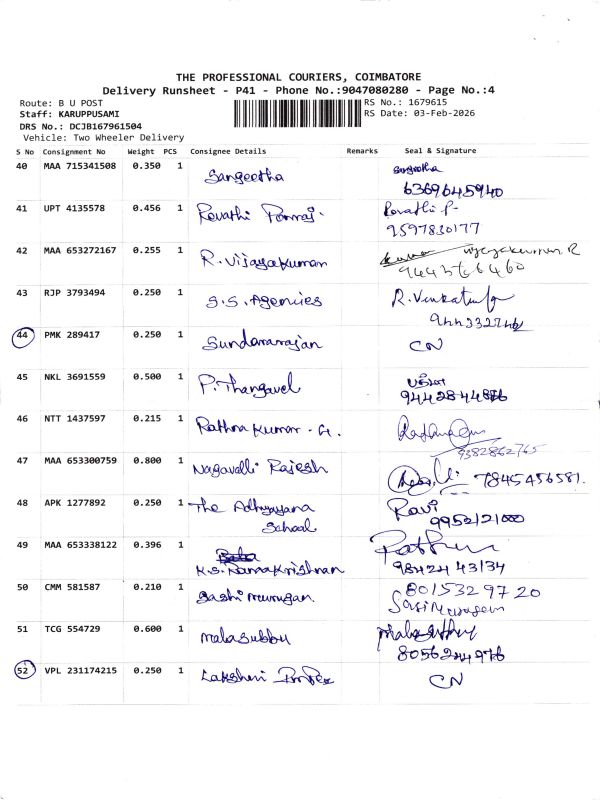 THE PROFESSIONAL COURIERS, COIMBATORE
Delivery Runsheet - P41 - Phone No.:9047080280 - Page No.:4
Route: B U POST
RS No.: 1679615
Staff: KARUPPUSAMI
RS Date: 03-Feb-2026
DRS No.: DCJB167961504
Vehicle: Two Wheeler Delivery
S No Consignment No Weight PCS Consignee Details Remarks Seal & Signature
40 MAA 715341508 0.350 1 Sangeetha Sangeetha
6369645940
41 UPT 4135578 0.456 1 Revathi Ponraj. Revathi P-
9597830177
42 MAA 653272167 0.255 1 R. Vijayakumar Vijayakumar R
9443766460
43 RJP 3793494 0.250 1 S.S. Agencies
44 PMK 289417 0.250 1 Sundararajan CN
45 NKL 3691559 0.500 1 P. Thangavel
9442844876
46 NTT 1437597 0.215 1 Rathna Kumar. G.
9382862765
47 MAA 653300759 0.800 1 Nagavalli Rajesh 7845456581.
48 APK 1277892 0.250 1 The Adhyayana Ravi
School
49 MAA 653338122 0.396 1
K.S. Ramakrishnan 9842443134
50 CMM 581587 0.210 1 Sashi murugan. 8015329720
Sasi Murugan
51 TCG 554729 0.600 1 malasubbu
8056244976
52 VPL 231174215 0.250 1 Lakshmi CN